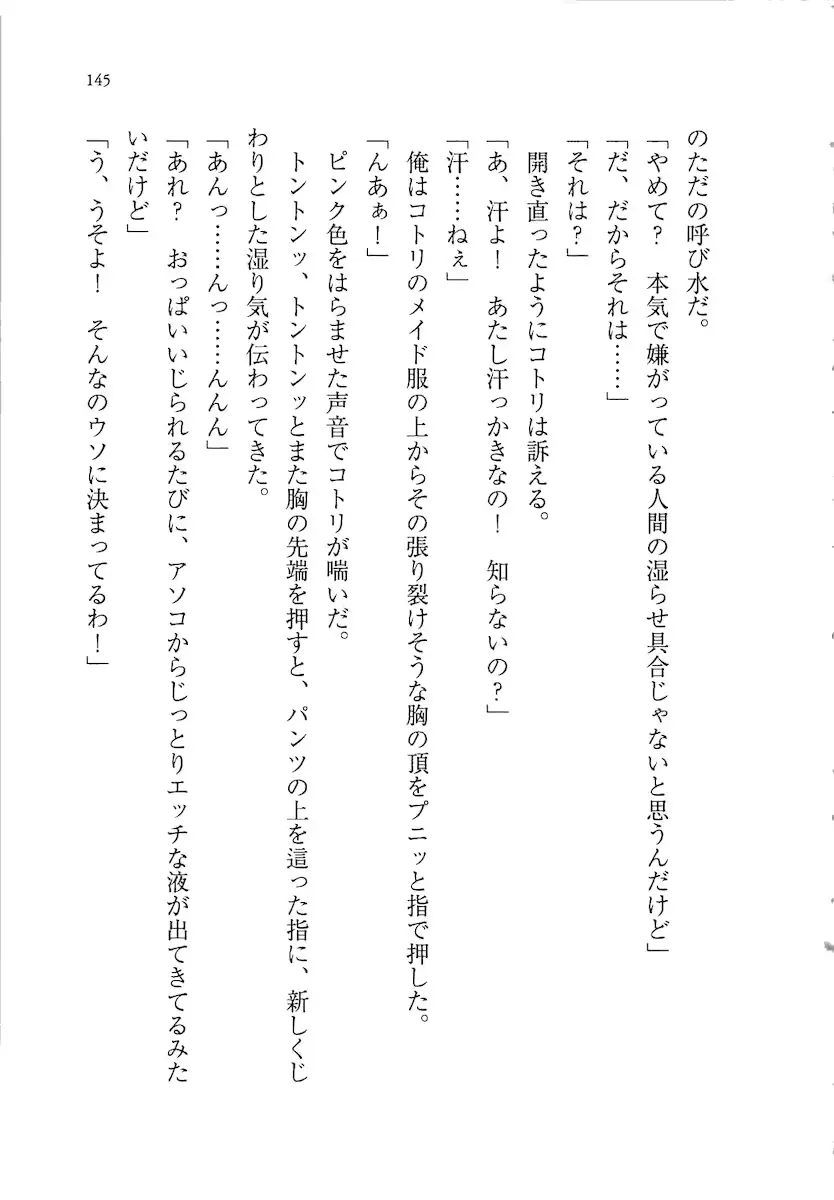 145
のただの呼び水だ。
「やめて？　本気で嫌がっている人間の湿らせ具合じゃないと思うんだけど」
「だ、だからそれは……」
「それは？」
　開き直ったようにコトリは訴える。
「あ、汗よ！　あたし汗っかきなの！　知らないの？」
「汗……ねぇ」
　俺はコトリのメイド服の上からその張り裂けそうな胸の頂をプニッと指で押した。
「んあぁ！」
　ピンク色をはらませた声音でコトリが喘いだ。
　トントンッ、トントンッとまた胸の先端を押すと、パンツの上を這った指に、新しくじ
わりとした湿り気が伝わってきた。
「あんっ……んっ……んんん」
「あれ？　おっぱいいじられるたびに、アソコからじっとりエッチな液が出てきてるみた
いだけど」
「う、うそよ！　そんなのウソに決まってるわ！」